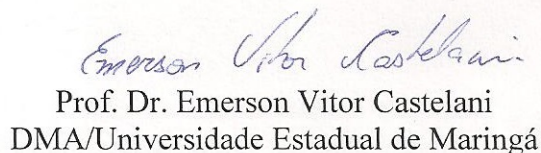 Emerson Vitor Castelani
Prof. Dr. Emerson Vitor Castelani
DMA/Universidade Estadual de Maringá